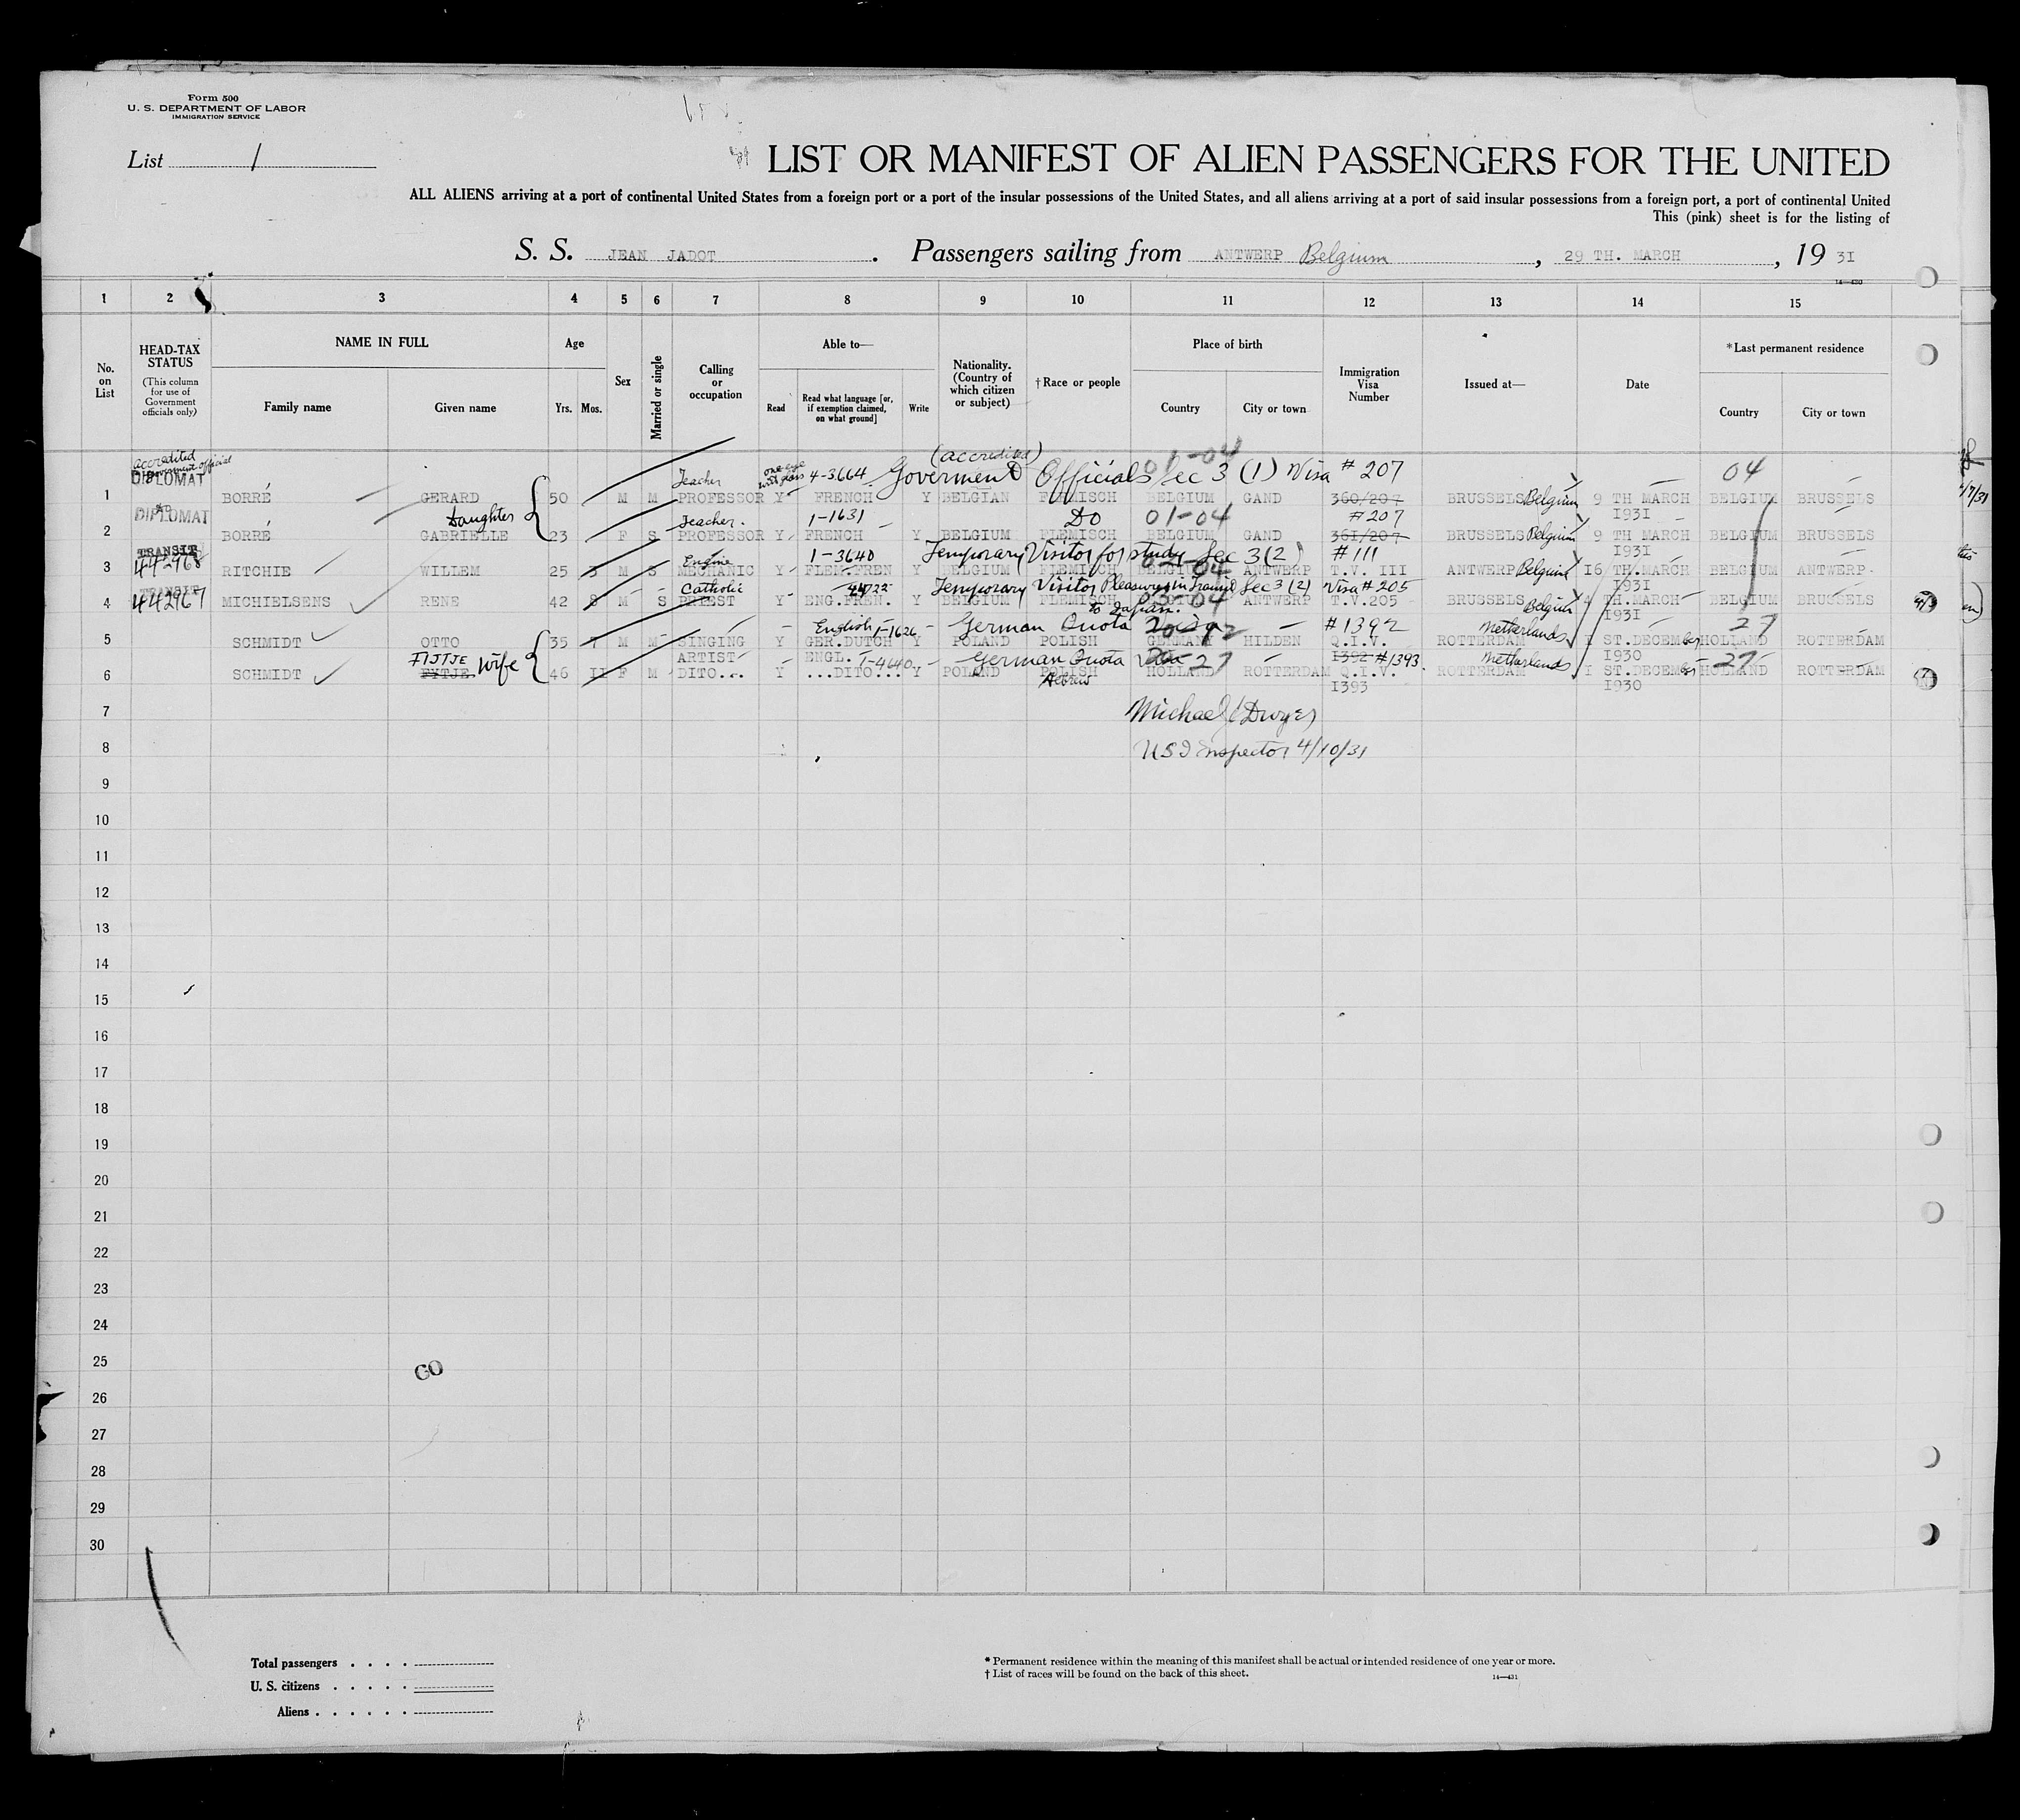 Form 500
U. S. DEPARTMENT OF LABOR
IMMIGRATION SERVICE
List 1
LIST OR MANIFEST OF ALIEN PASSENGERS FOR THE UNITED
ALL ALIENS arriving at a port of continental United States from a foreign port or a port of the insular possessions of the United States, and all aliens arriving at a port of said insular possessions from a foreign port, a port of continental United
This (pink) sheet is for the listing of
S. S. JEAN JADOT . Passengers sailing from ANTWERP Belgium , 29 TH. MARCH , 19 31
14—430
1 2 3 4 5 6 7 8 9 10 11 12 13 14 15
No. on List
HEAD-TAX STATUS
(This column for use of Government officials only)
NAME IN FULL
Family name Given name
Age
Yrs. Mos.
Sex
Married or single
Calling or occupation
Able to—
Read
Read what language [or, if exemption claimed, on what ground]
Write
Nationality. (Country of which citizen or subject)
†Race or people
Place of birth
Country City or town
Immigration Visa Number
Issued at—
Date
*Last permanent residence
Country City or town
accredited Government official (accredited) 01-04
DIPLOMAT Teacher 4-3664 Goverment Officials Sec 3 (1) Visa # 207 04
1 BORRÉ GERARD 50 M M PROFESSOR Y FRENCH Y BELGIAN FLEMISCH BELGIUM GAND 360/207 BRUSSELS Belgium 9 TH MARCH BELGIUM BRUSSELS
DIPLOMAT Daughter Teacher. 1-1631 DO 01-04 #207 1931
2 BORRÉ GABRIELLE 23 F S PROFESSOR Y FRENCH Y BELGIUM FLEMISCH BELGIUM GAND 361/207 BRUSSELS Belgium 9 TH MARCH BELGIUM BRUSSELS
TRANSIT Engine 1-3640 Temporary Visitor for study Sec 3(2) #111 1931
3 442968 RITCHIE WILLEM 25 3 M S MECHANIC Y FLEM.FREN Y BELGIUM FLEMISCH BELGIUM ANTWERP T.V. III ANTWERP Belgium 16 TH.MARCH BELGIUM ANTWERP
TRANSIT Catholic Temporary Visitor Pleasure in Transit Sec 3 (2) Visa #205 1931
4 442967 MICHIELSENS RENE 42 8 M S PRIEST Y ENG.FREN. Y BELGIUM FLEMISCH BELGIUM ANTWERP T.V.205 BRUSSELS Belgium 4 TH.MARCH BELGIUM BRUSSELS
to Japan. 1931
English 1-1626 German Quota Visa #1392 Netherlands 27
5 SCHMIDT OTTO 35 7 M M SINGING Y GER.DUTCH Y POLAND POLISH GERMANY HILDEN Q.I.V. ROTTERDAM 1 ST.DECEMber HOLLAND ROTTERDAM
FIJTJE wife ARTIST ENGL. 1-4640 German Quota Visa 27 1392 #1393. Netherlands 1930 27
6 SCHMIDT FYTJE 46 II F M DITO... Y ...DITO... Y POLAND POLISH HOLLAND ROTTERDAM Q.I.V. ROTTERDAM 1 ST.DECEMber HOLLAND ROTTERDAM
Hebrew 1393 1930
7 Michael J Dwyer
8 U S I Inspector 4/10/31
9
10
11
12
13
14
15
16
17
18
19
20
21
22
23
24
25
GO
26
27
28
29
30
Total passengers . . . .
U. S. citizens . . . . .
Aliens . . . . . .
* Permanent residence within the meaning of this manifest shall be actual or intended residence of one year or more.
† List of races will be found on the back of this sheet.
14—431